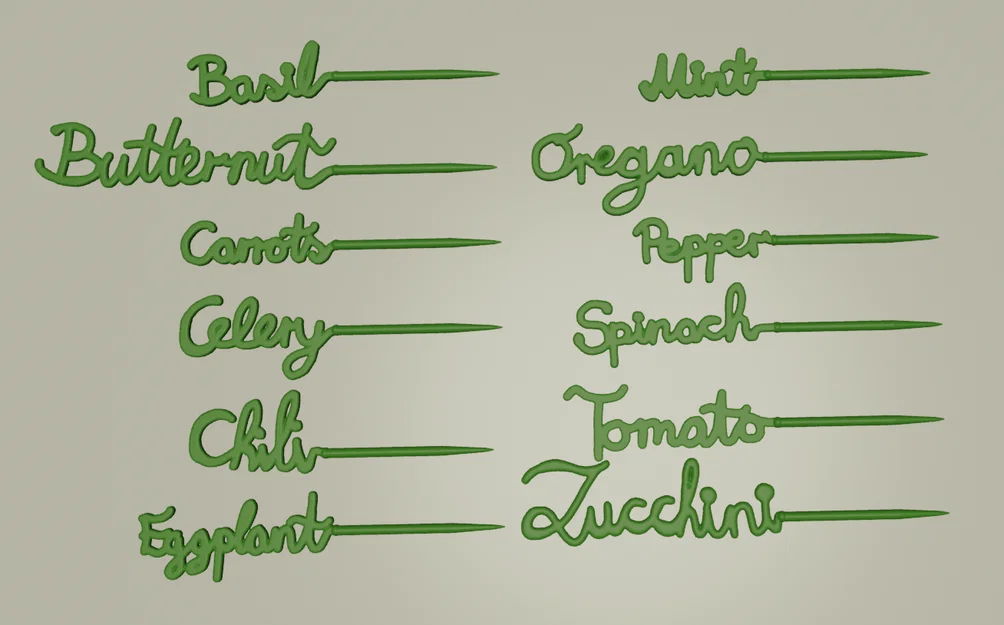 Basil
Butternut
Carrots
Celery
Chili
Eggplant
Mint
Oregano
Pepper
Spinach
Tomato
Zucchini